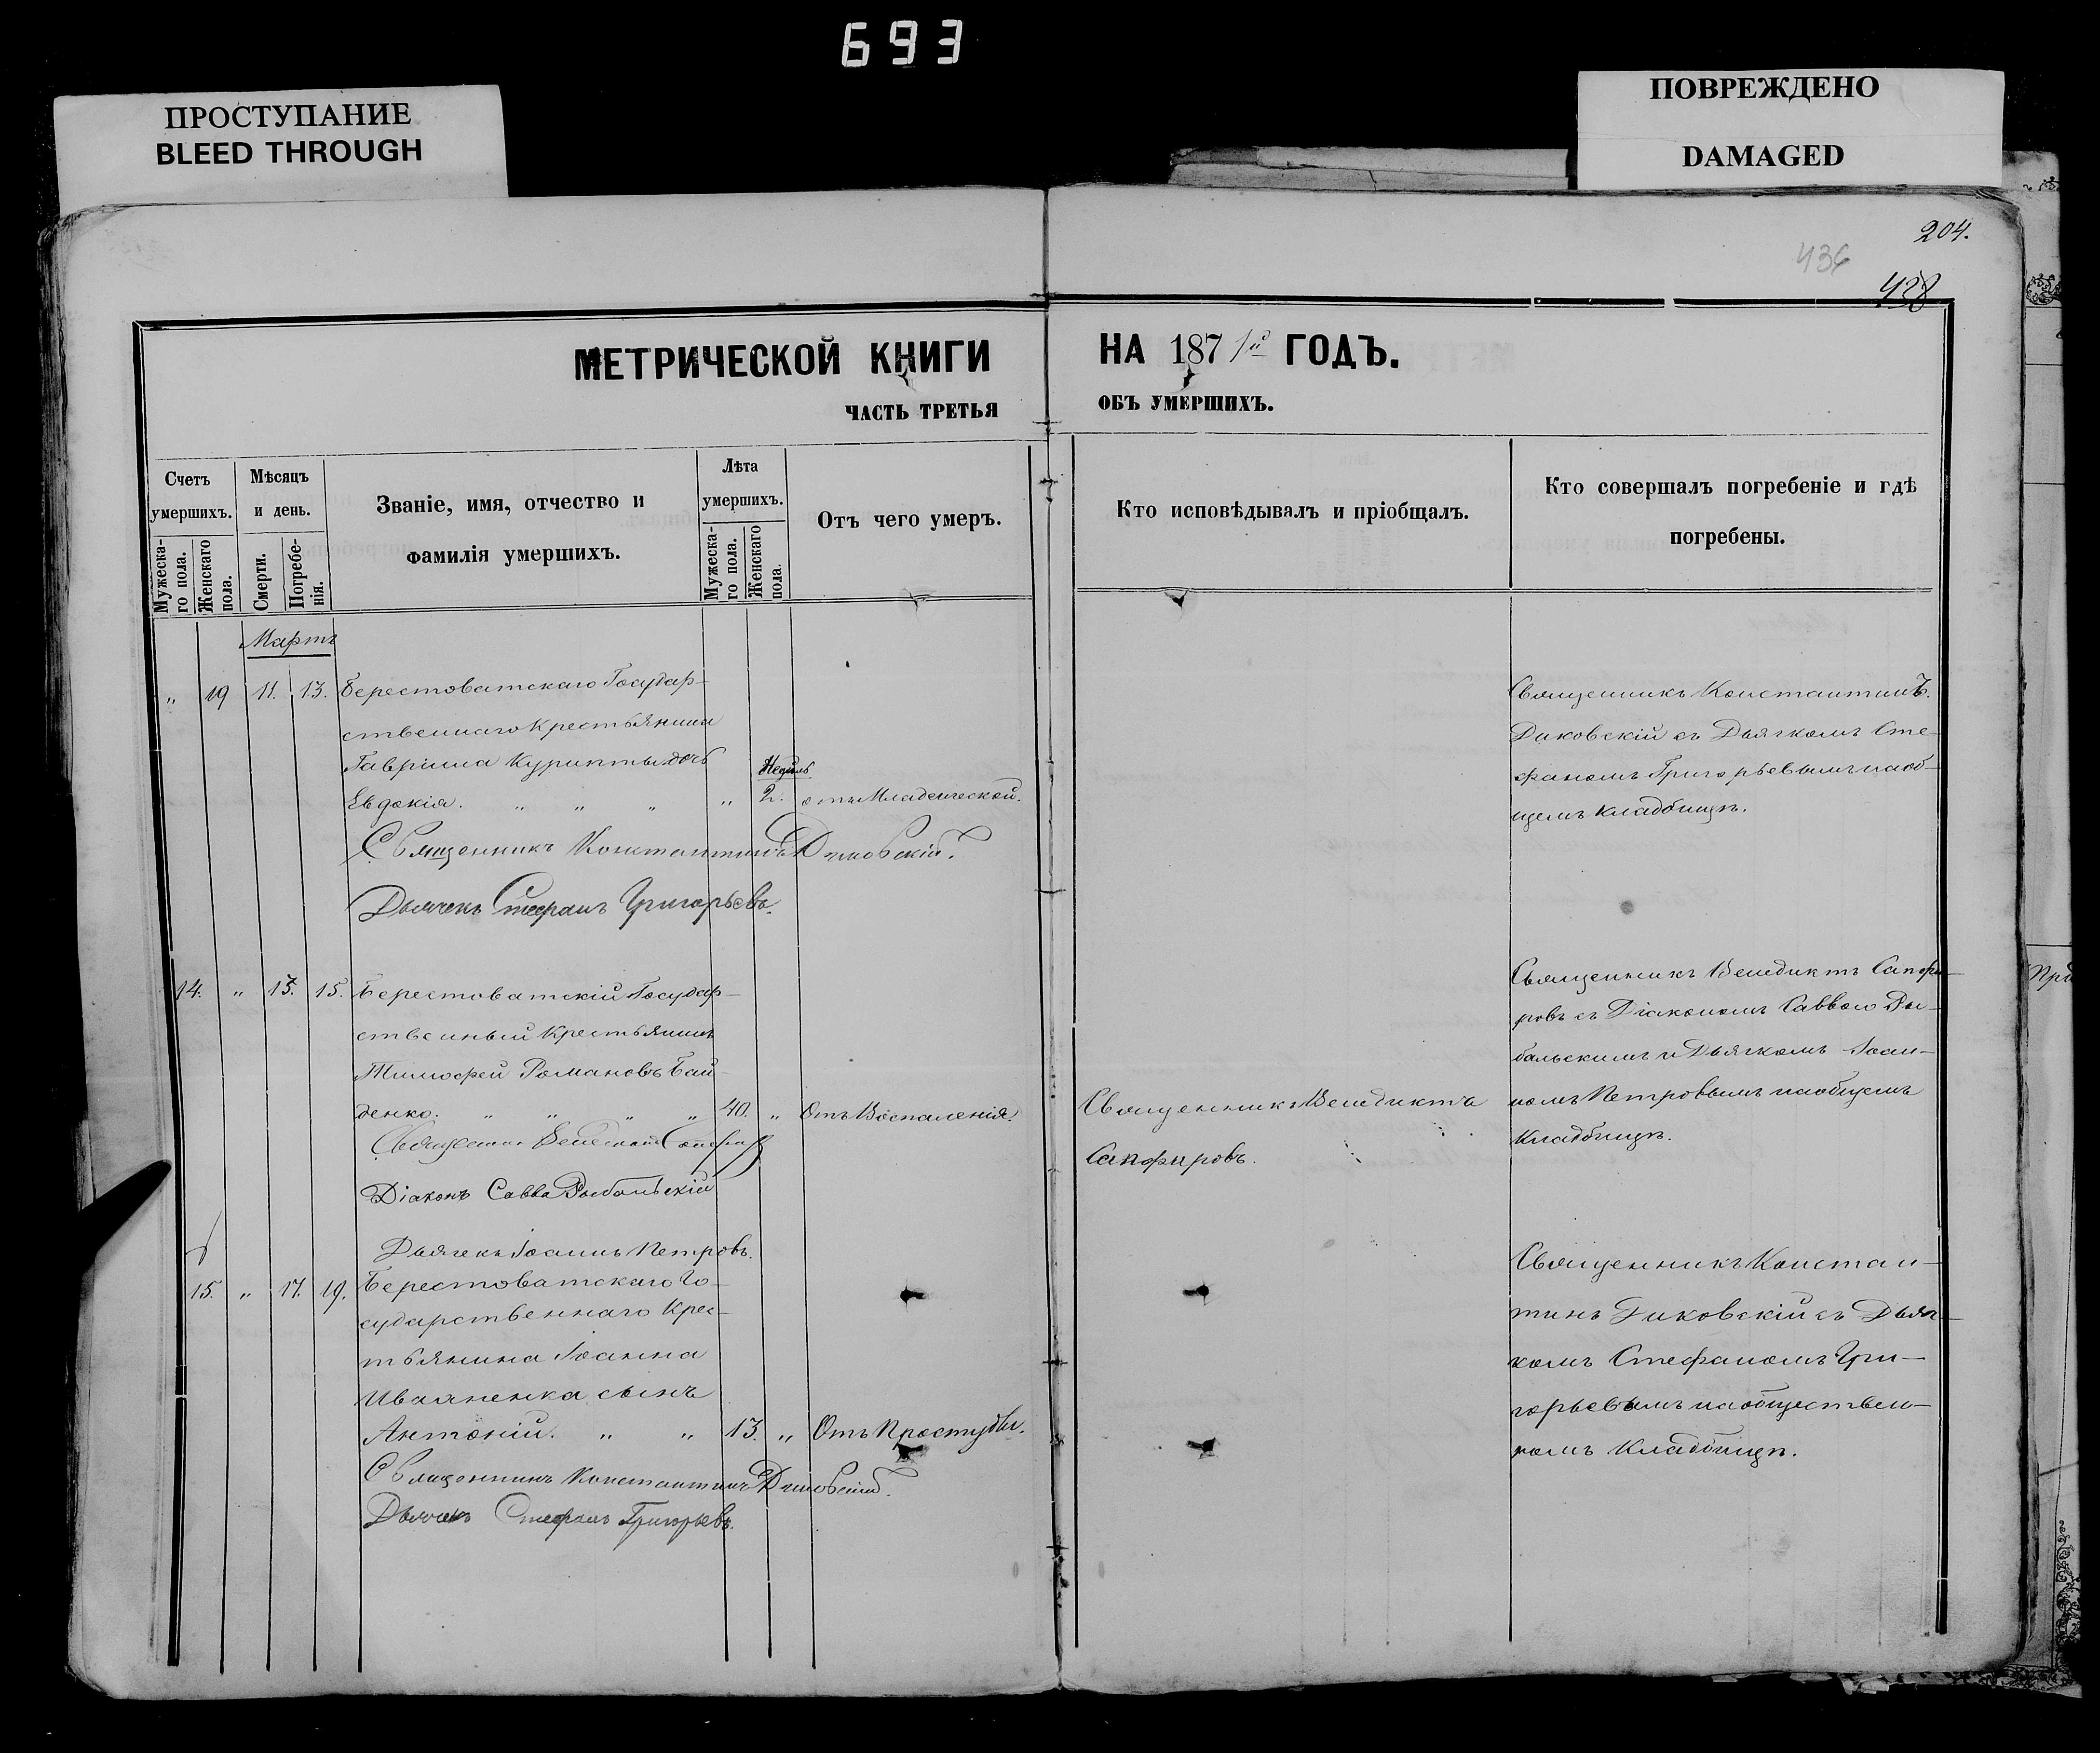 693
ПРОСТУПАНИЕ
BLEED THROUGH
ПОВРЕЖДЕНО
DAMAGED
204.
436
428
МЕТРИЧЕСКОЙ КНИГИ НА 1871й ГОДЪ.
ЧАСТЬ ТРЕТЬЯ ОБЪ УМЕРШИХЪ.
Счетъ умершихъ.
Мужескаго пола.
Женскаго пола.
Мѣсяцъ и день.
Смерти.
Погребенія.
Званіе, имя, отчество и
фамилія умершихъ.
Лѣта умершихъ.
Мужескаго пола.
Женскаго пола.
Отъ чего умеръ.
Кто исповѣдывалъ и пріобщалъ.
Кто совершалъ погребеніе и гдѣ
погребены.
Мартъ
" 19 11. 13. Берестоватскаго Государ-
ственнаго Крестьянина
Гавріила дочь
Недѣль
Евдокія. " " " " 2. отъ Младенческой.
Священникъ Константинъ Диковскій.
Дьячекъ Стефанъ Григорьевъ.
Священникъ Константинъ
Диковскій съ Дьячкомъ Сте-
фаномъ Григорьевымъ на об-
щемъ кладбищѣ.
14. " 13. 15. Берестоватскій Государ-
ственный Крестьянинъ
Тимофей Романовъ Бай-
денко. " " " " 40. " Отъ Воспаленія.
Священникъ Венедиктъ Сапфировъ
Діаконъ Савва
Дьячекъ Іоаннъ Петровъ.
Священникъ Венедиктъ
Сапфировъ.
Священникъ Венедиктъ Сапфи-
ровъ съ Діакономъ Саввою Ры-
бальскимъ и Дьячкомъ Іоан-
номъ Петровымъ на общемъ
кладбищѣ.
15. " 17. 19. Берестоватскаго Го-
сударственнаго Крес-
тьянина Іоанна
Иваненка сынъ
Антоній. " " 13. " Отъ Простуды.
Священникъ Константинъ Диковскій.
Дьячекъ Стефанъ Григорьевъ.
Священникъ Констан-
тинъ Диковскій съ Дьяч-
комъ Стефаномъ Гри-
горьевымъ на обществен-
номъ кладбищѣ.